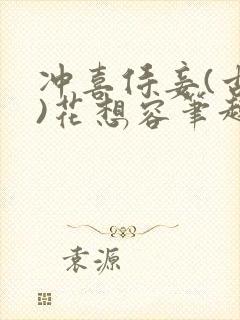 冲喜侍妾(古
)花想容笔趣
袁源